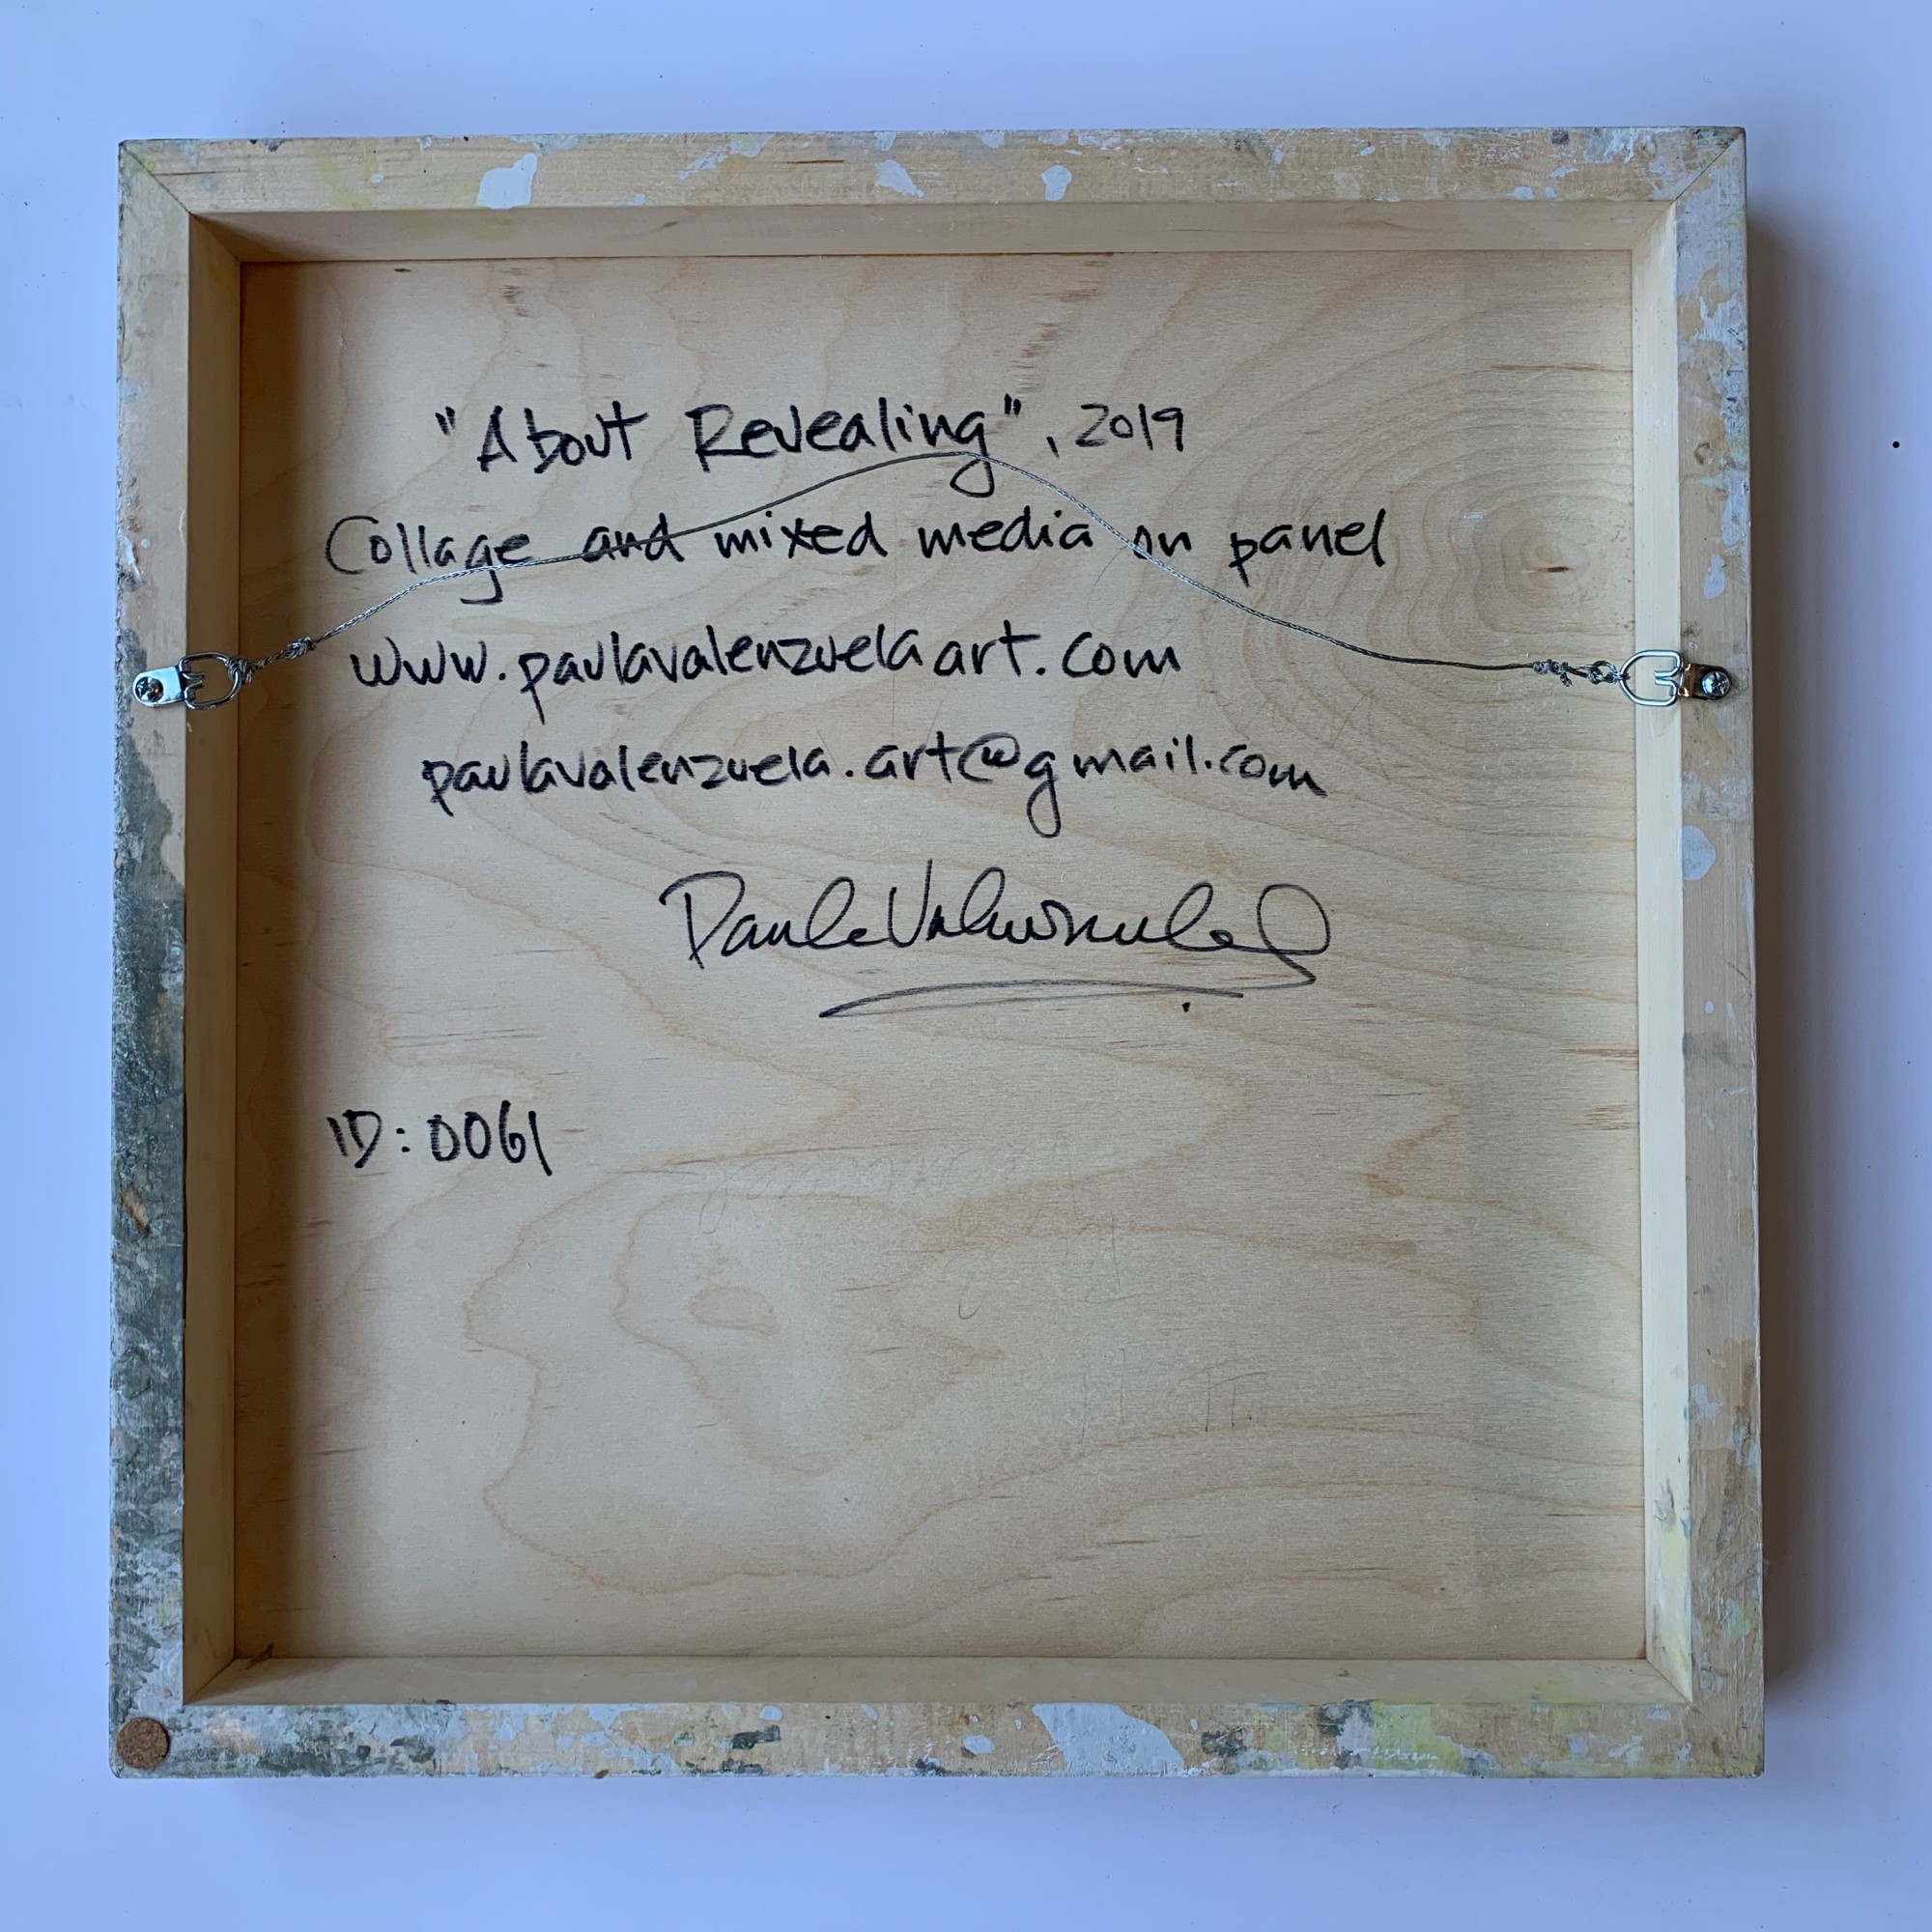 "About Revealing", 2019
Collage and mixed media on panel
www.paulavalenzuelaart.com
paulavalenzuela.art@gmail.com
Paula Valenzuela
ID: 0061